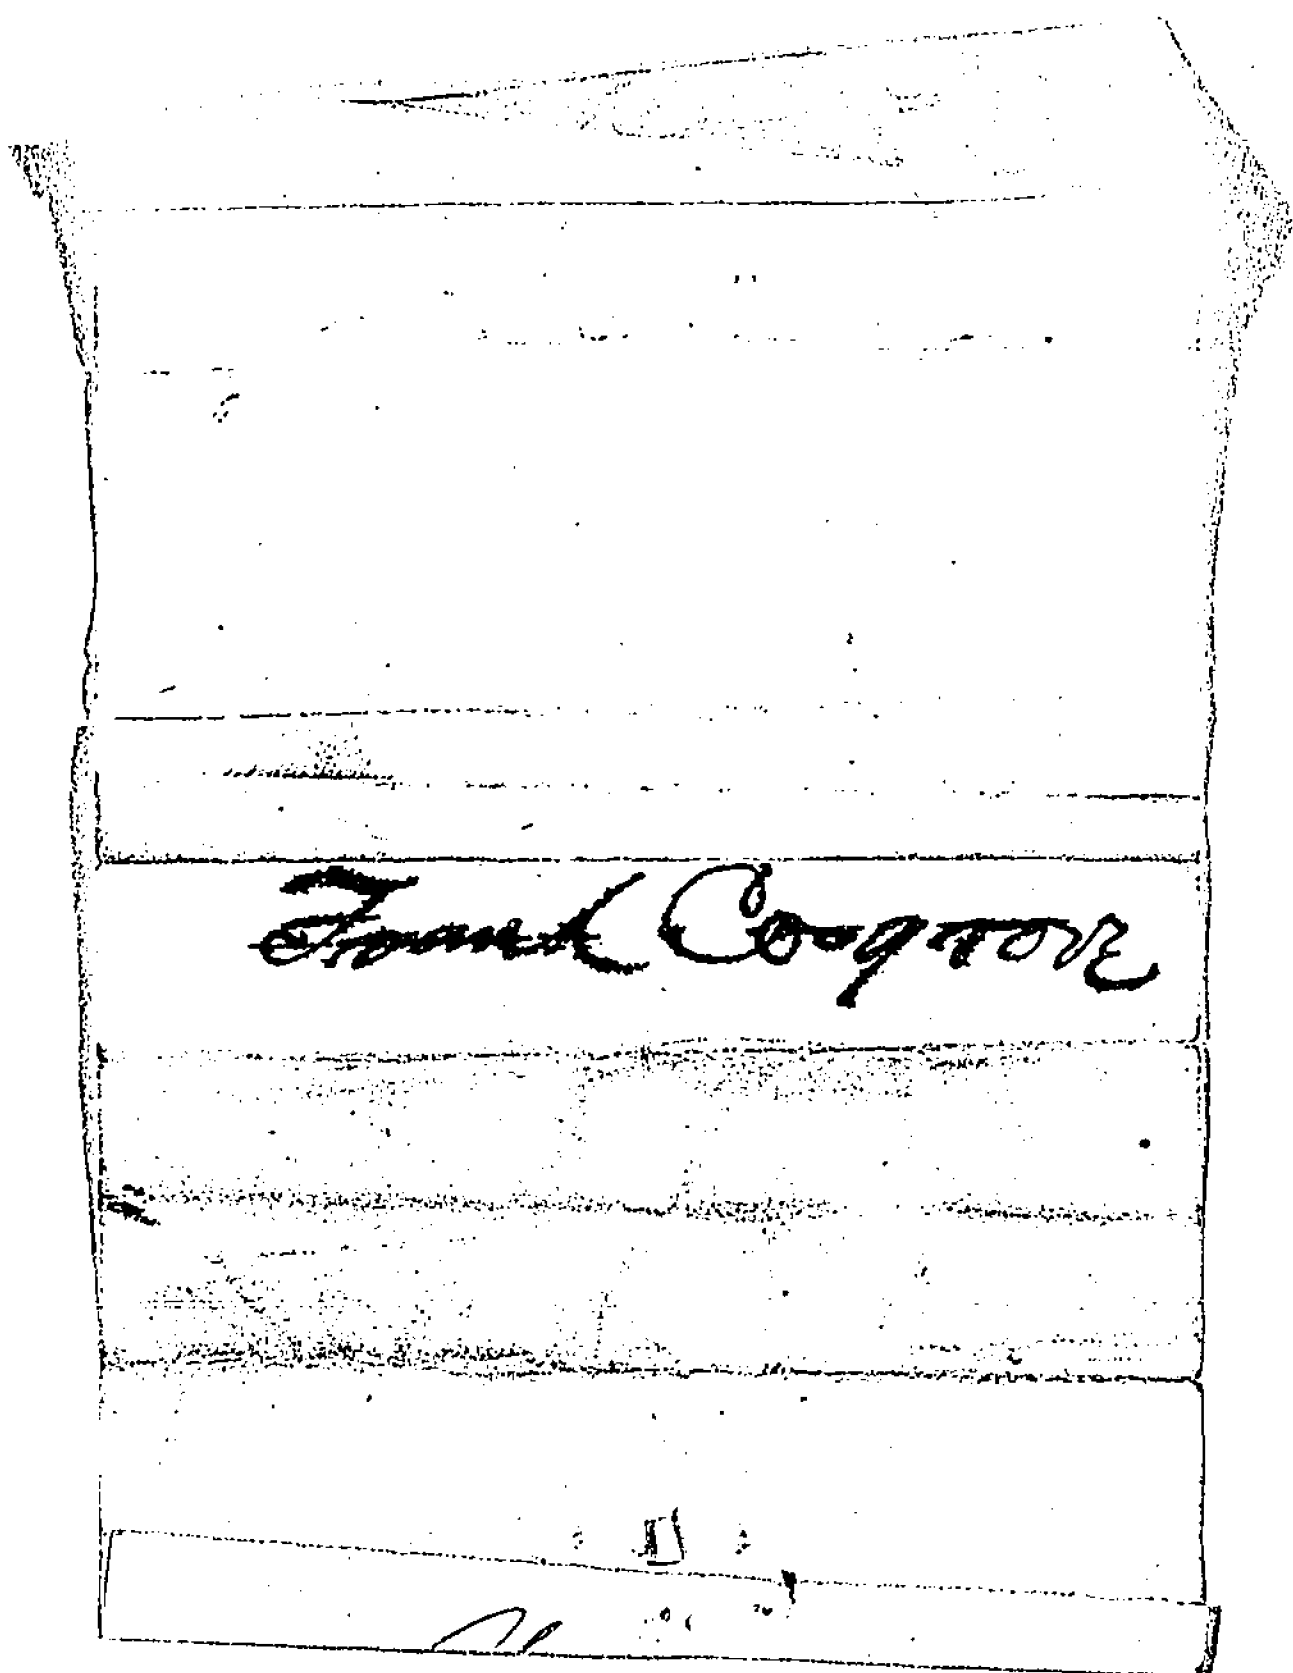 Frank Cosgrove